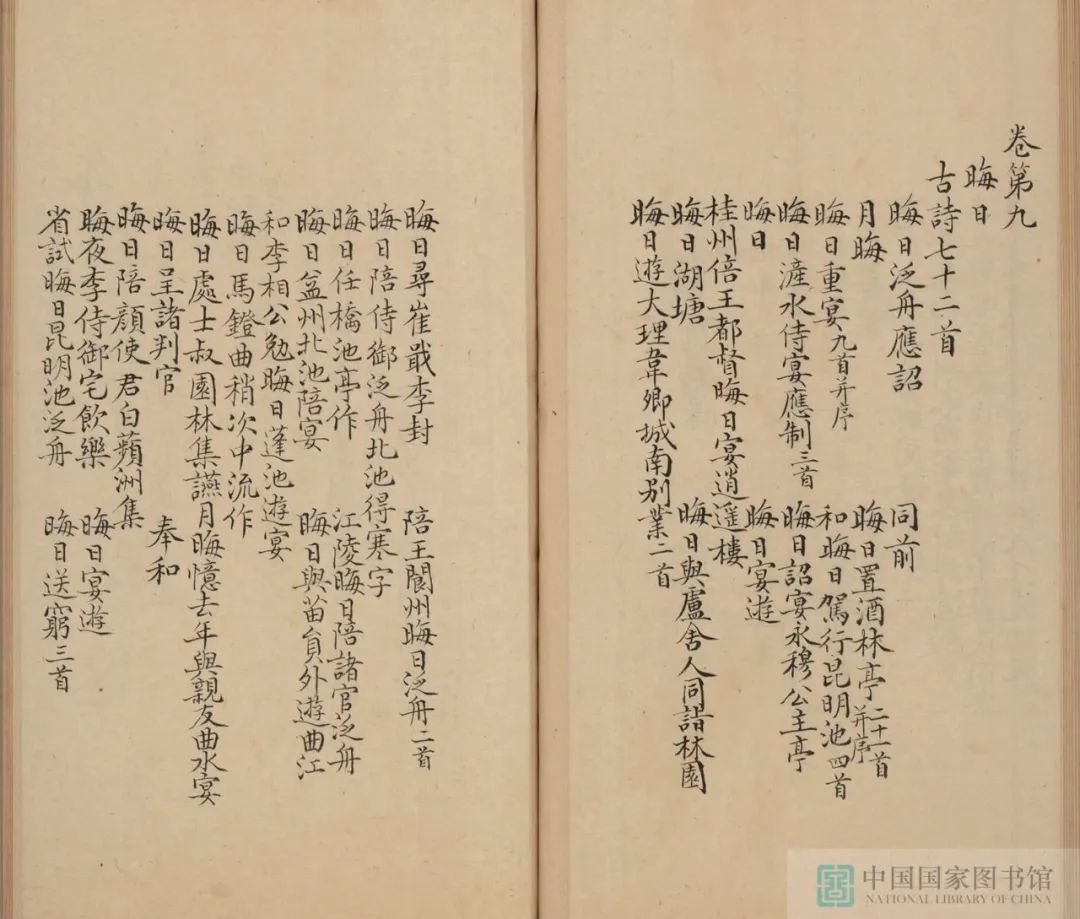 卷第九
晦日
古詩七十二首
晦日泛舟應詔 同前
月晦 晦日置酒林亭二十一首并序
晦日重宴九首并序 和晦日駕行昆明池四首
晦日滻水侍宴應制三首 晦日詔宴永穆公主亭
晦日 晦日宴遊
桂州倍王都督晦日宴逍遥樓
晦日湖塘 晦日與盧舍人同詣林園
晦日遊大理韋卿城南别業二首
晦日尋崔戢李封 陪王閬州晦日泛舟二首
晦日陪侍御泛舟北池得寒字
晦日任橋池亭作 江陵晦日陪諸官泛舟
晦日益州北池陪宴 晦日與苗員外遊曲江
和李相公勉晦日蓬池遊宴
晦日馬鐙曲稍次中流作
晦日處士叔園林集讌 月晦憶去年與親友曲水宴
晦日呈諸判官 奉和
晦日陪顔使君白蘋洲集
晦夜李侍御宅飲樂 晦日宴遊
省試晦日昆明池泛舟 晦日送窮三首
中国国家图书馆
NATIONAL LIBRARY OF CHINA